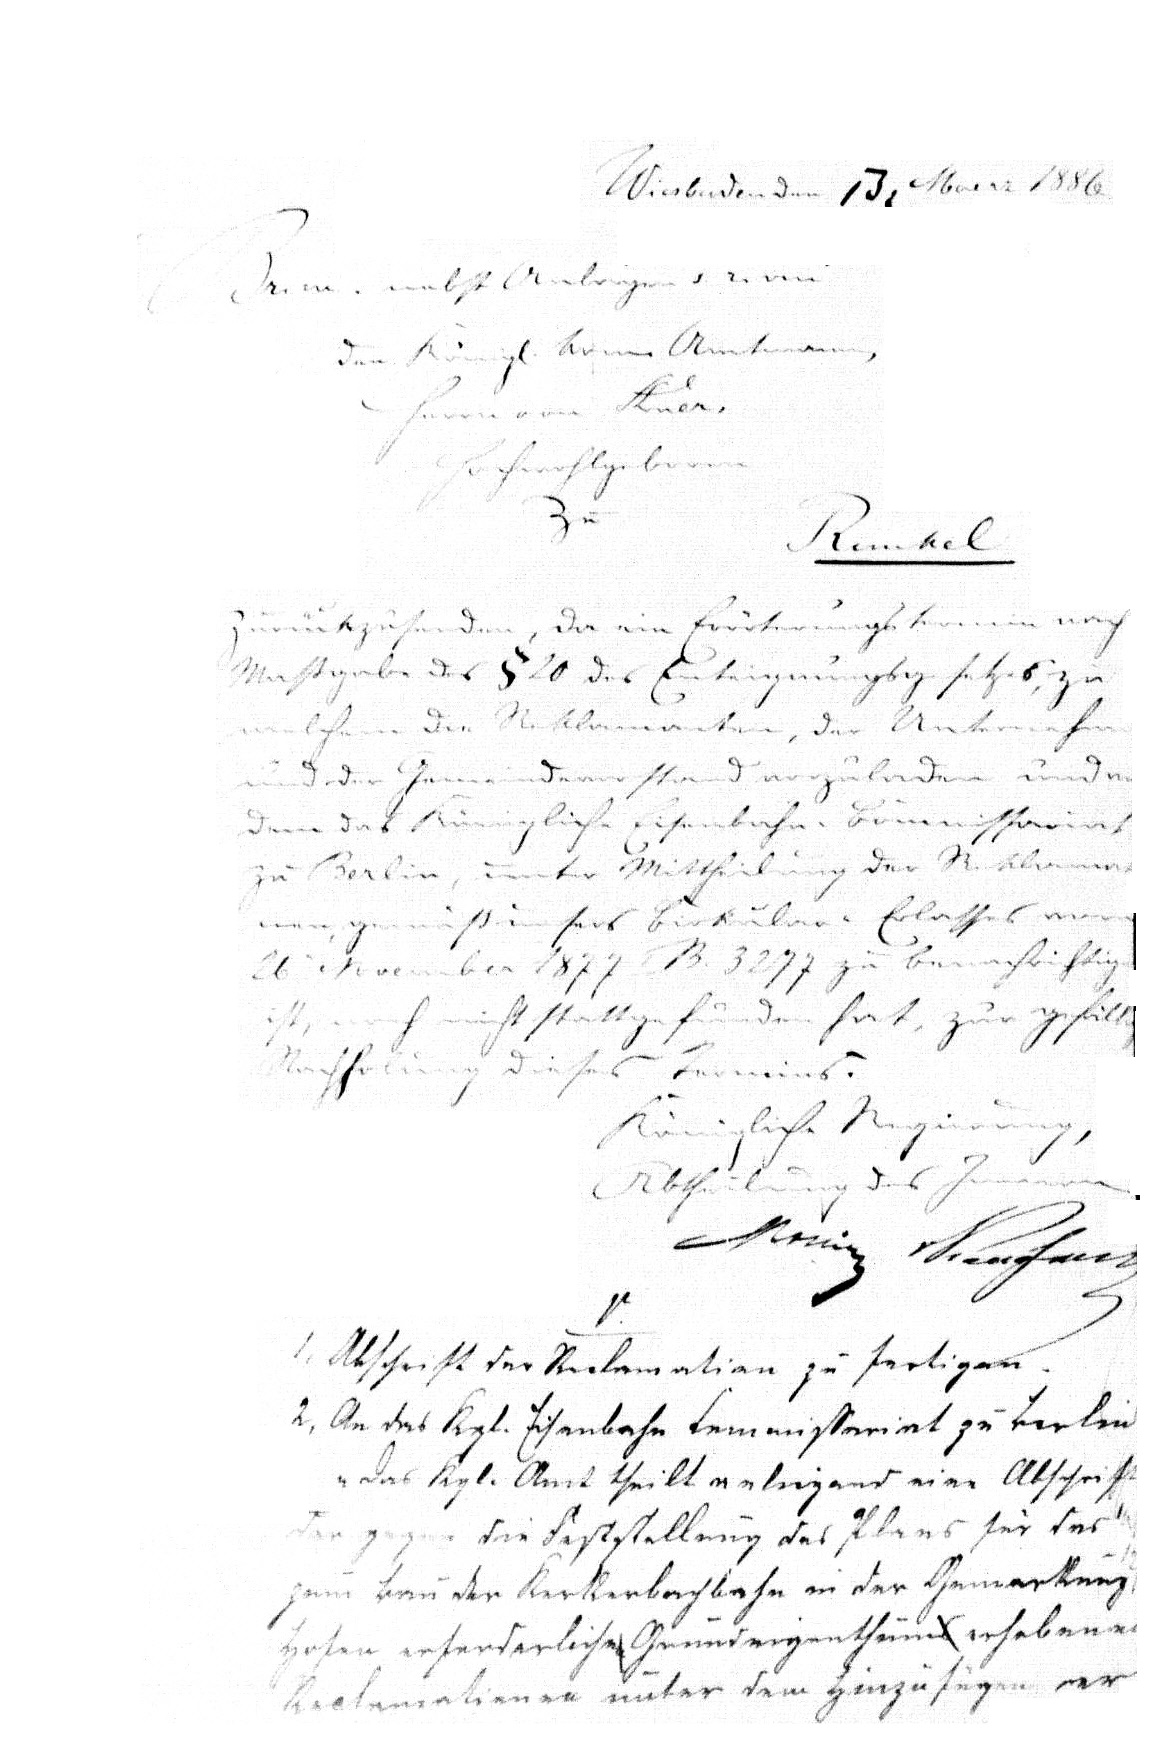 Wiesbaden den 13. Maerz 1886
Br. m. nebst Anlagen s. r. an
den Königl. Herrn Amtmann,
Herrn von
Hochwohlgeboren
Zu
Runkel
zurückzusenden, da ein Erörterungstermin nach
Maßgabe des § 20 des Enteignungsgesetzes, zu
welchem die Reklamanten, der Unternehm
und der Gemeindevorstand vorzuladen und von
dem das Königliche Eisenbahn-Commissariat
zu Berlin, unter Mittheilung der Reklamat
nen, gemäß unsers Cirkular-Erlasses vom
26 November 1877 B. 3277 zu benachrichtige
ist, noch nicht stattgefunden hat, zur gefälli
Nachholung dieses Termins.
Königliche Regierung,
Abtheilung des Innern.
V.
1, Abschrift der Reclamation zu fertigen.
2, An das Kgl. Eisenbahn Commissariat zu Berlin
"Das Kgl. Amt theilt anliegend eine Abschrift
der gegen die Feststellung des Plans für das
zum Bau der Kerkerbachbahn in der Gemarkung
Hofen erforderliche Grundeigenthum erhobenen
Reclamationen unter dem Hinzufügen er